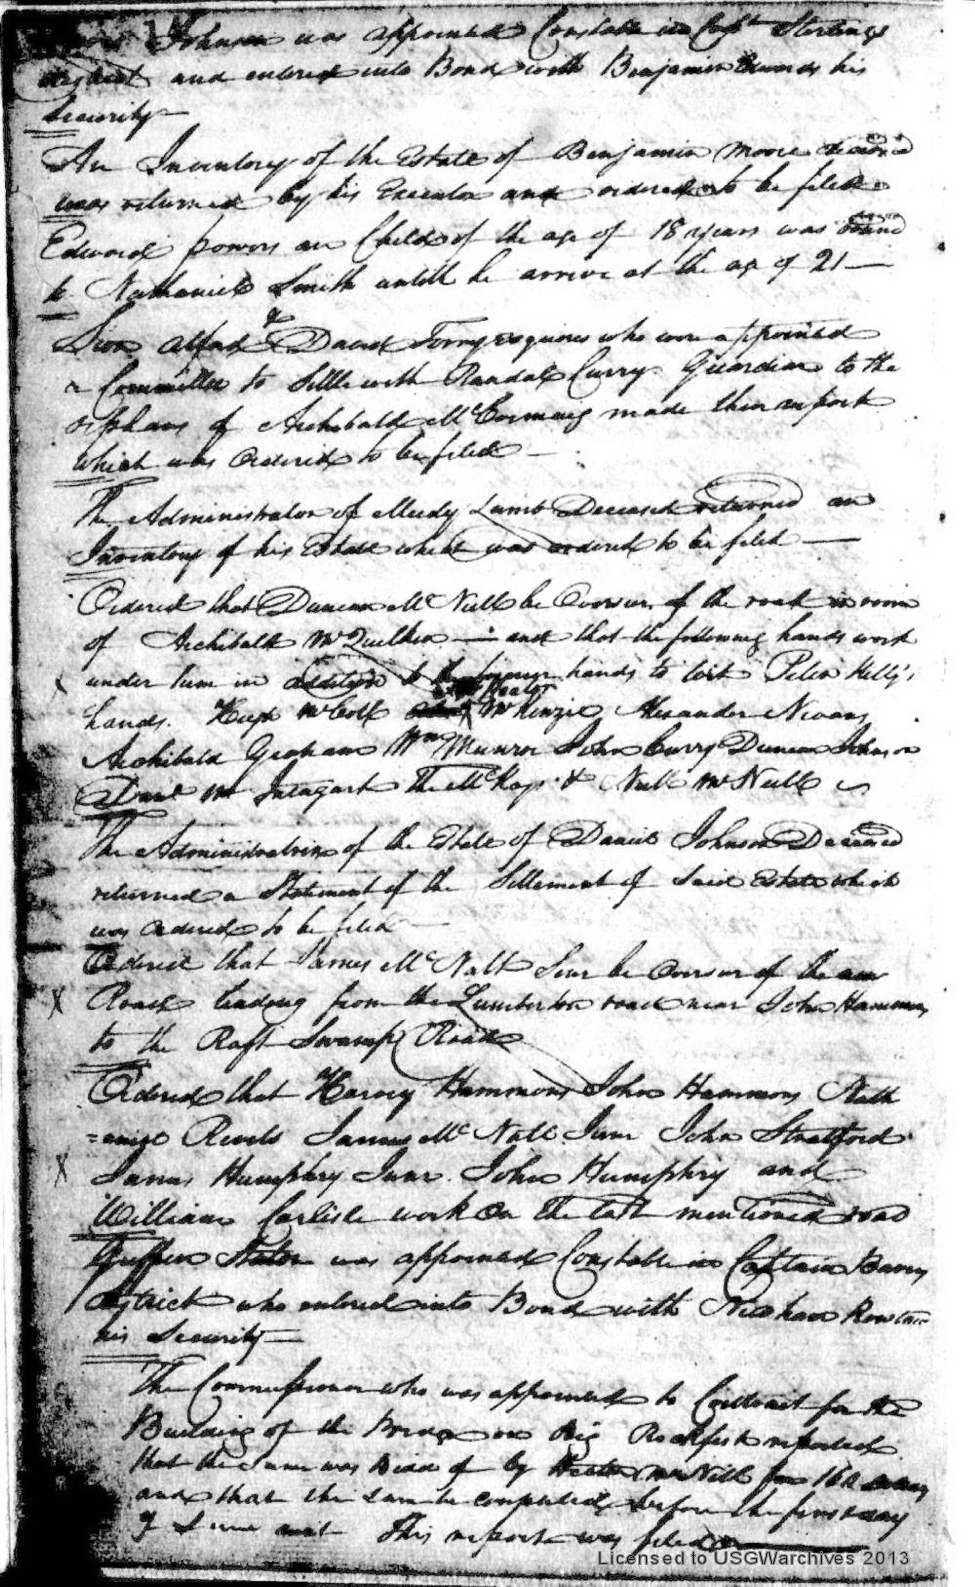 Johnson was appointed Constable in Capt Sterlings
district and entered into Bond with Benjamin Edwards his
Security
An Inventory of the Estate of Benjamin Moore deceased
was returned by his Executor and ordered to be filed
Edward Powers an Child of the age of 18 years was bound
to Nathaniel Smith untill he arrive at the age of 21
Sion Alford & David Torry esquires who were appointed
a Committee to Settle with Randal Curry Guardian to the
orphans of Archibald McCormaig made their report
which was Ordered to be filed
The Administrator of Lamb Deceased returned an
Inventory of his Estate which was ordered to be filed
Ordered that Duncan McNeill be Overseer of the road in room
of Archibald McQuilken and that the following hands work
under him in addition to the former hands to wit Peter Kelly's
hands. McKenzie Alexander
Archibald Graham Wm Munroe John Curry Duncan Johnson
Danl The McKays & Neill McNeill
The Administratrix of the Estate of Daniel Johnson Deceased
returned a Statement of the Settlement of Said Estate which
was ordered to be filed
Ordered that James McNatt Senr be Overseer of the new
Road leading from the Lumberton road near John Hammons
to the Raft Swamp Road
Ordered that Harvey Hammons John Hammons Nath
=aniel Revels James McNatt Junr John Stratford
James Humphry Junr. John Humphry and
William Carlisle work on the last mentioned road
Griffin was appointed Constable in Captain
district who entered into Bond with
his Security
The Commissioner who was appointed to Contract for the
Building of the Bridge on Big Rockfish reported
that the Same was Bidd of by Hector McNeill for 160
and that the Same be completed before the first day
of June next This report was filed
Licensed to USGWarchives 2013